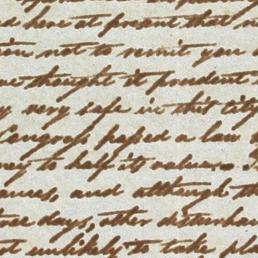 here at present that
not to remit you
thought it prudent
very safe in this city
Congress passed a law
to half its value
and although th
days, other disturban
unlikely to take pla